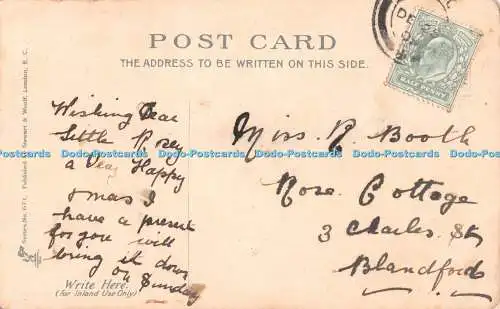 POST CARD
THE ADDRESS TO BE WRITTEN ON THIS SIDE.
Series No. 671. Published by Stewart & Woolf, London, E.C.
Wishing Dear
little Rosey
a Very Happy
Xmas I
have a present
for you will
bring it down
on Sunday
Write Here.
(For Inland Use Only)
Miss R Booth
Rose Cottage
3 Charles St
Blandford
Dodo-Postcards Dodo-Postcards Dodo-Postcards Dodo-Postcards Dodo-Postcards Dodo-Postcards